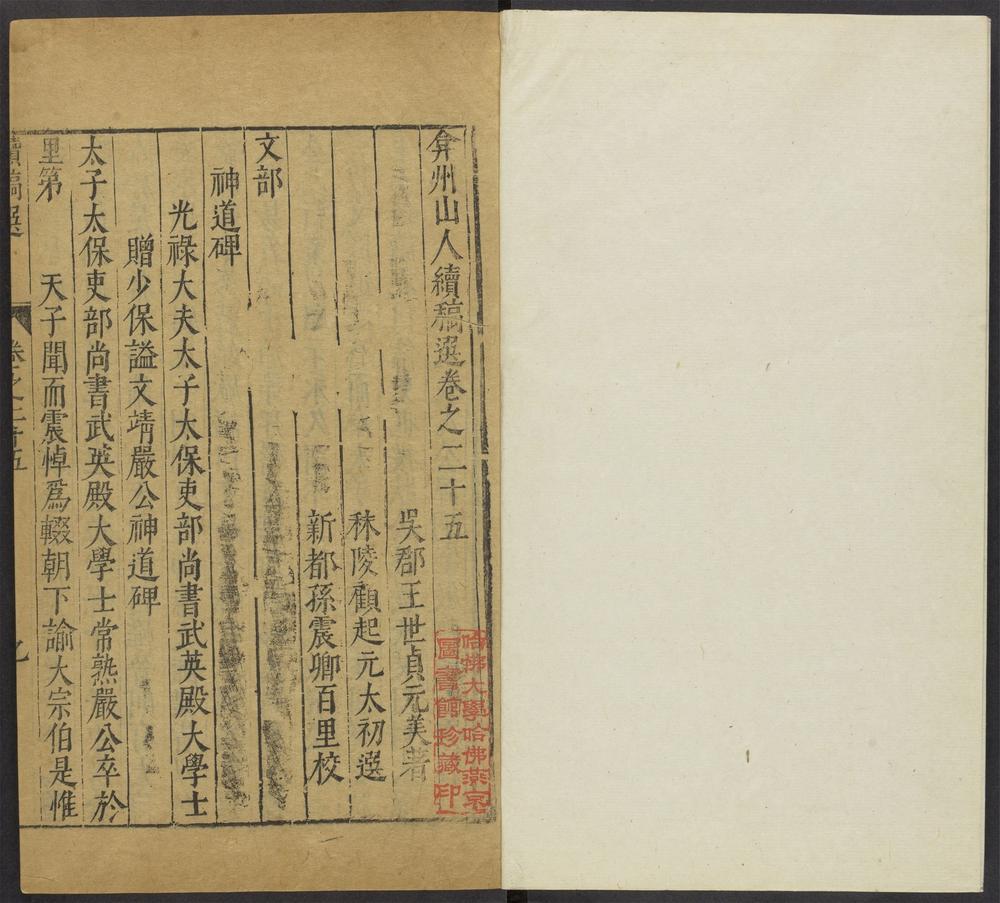 弇州山人續稿選卷之二十五
吳郡王世貞元美著
秣陵顧起元太初選
新都孫震卿百里校
文部
神道碑
光祿大夫太子太保吏部尚書武英殿大學士
贈少保謚文靖嚴公神道碑
太子太保吏部尚書武英殿大學士常熟嚴公卒於
里第 天子聞而震悼爲輟朝下諭大宗伯是惟
續稿選 卷之二十五
哈佛大學哈佛燕京
圖書館珍藏印